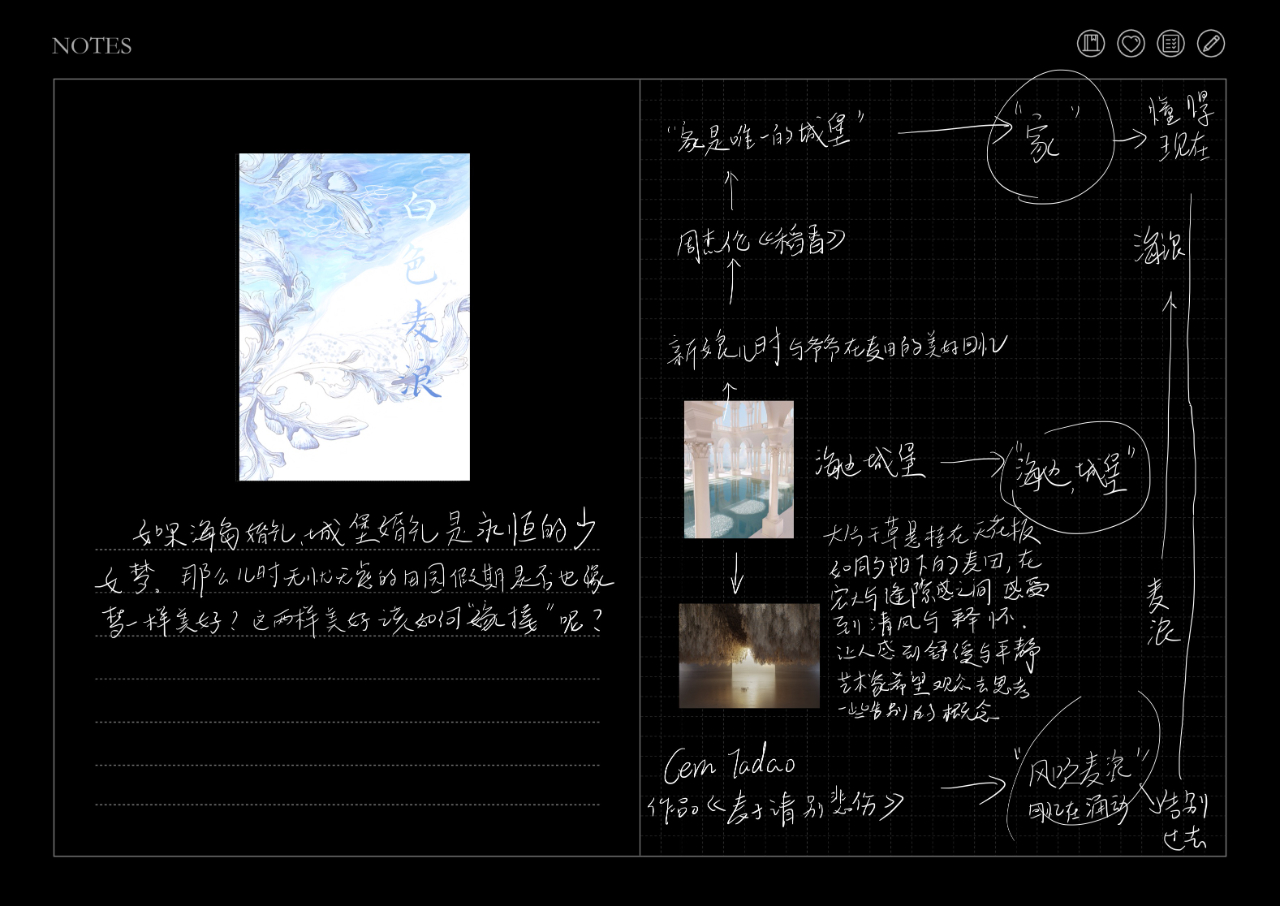 NOTES
白色麦浪
如果海岛婚礼、城堡婚礼是永恒的少
女梦，那么儿时无忧无虑的田园假期是否也像
梦一样美好？这两样美好该如何“嫁接”呢？
“家是唯一的城堡”
“家”
懂得
现在
周杰伦《稻香》
海浪
新娘儿时与爷爷在麦田的美好回忆
海边城堡
“海边，城堡”
大片干草悬挂在天花板
如同夕阳下的麦田，在
宏大与缝隙感之间 感受
到清风与释怀.
让人感到舒缓与平静
艺术家希望观众去思考
一些告别的概念
麦
浪
Cem Tadao
作品《麦子请别悲伤》
“风吹麦浪”
回忆在涌动
告别
过去